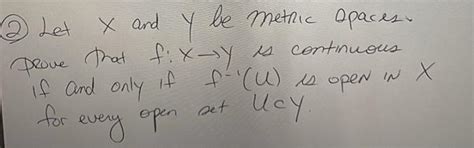 ② Let X and Y be metric spaces.
Prove that f: X→Y is continuous
if and only if f⁻¹(U) is open in X
for every open set U⊂Y.